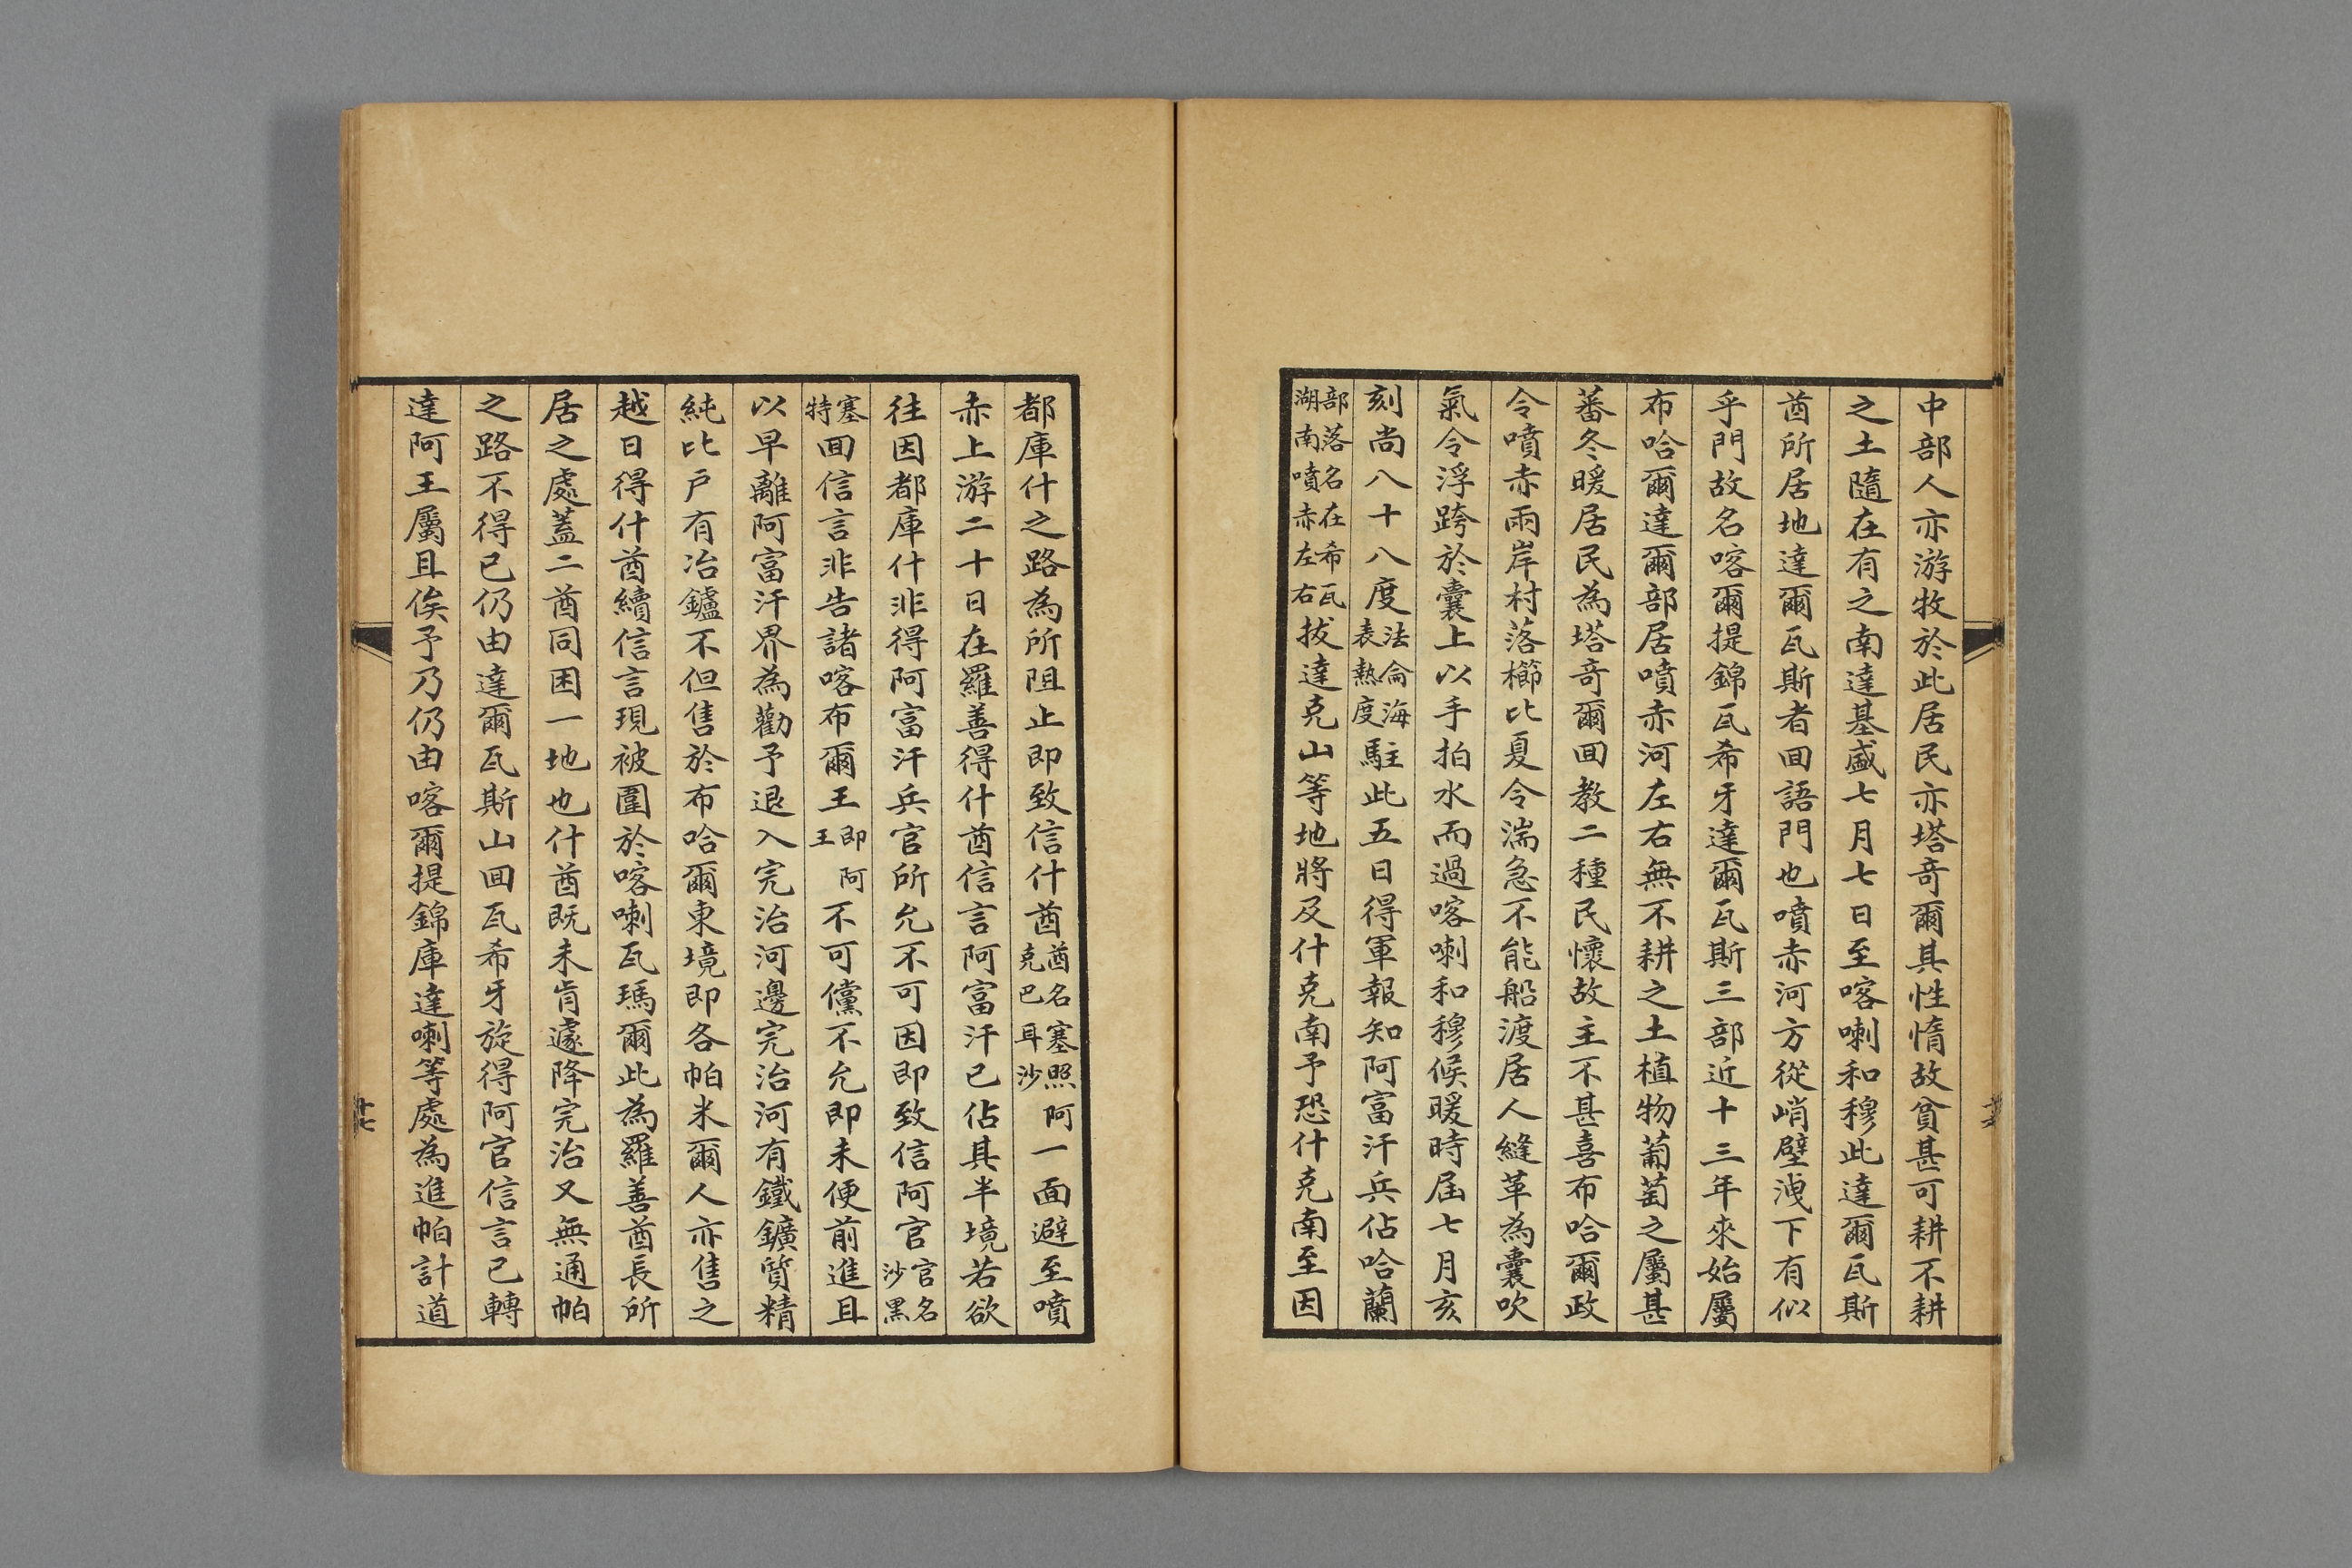 中部人亦游牧於此居民亦塔奇爾其性惰故貧甚可耕不耕
之土隨在有之南達基盛七月七日至喀喇和穆此達爾瓦斯
酋所居地達爾瓦斯者回語門也噴赤河方從峭壁洩下有似
乎門故名喀爾提錦瓦希牙達爾瓦斯三部近十三年來始屬
布哈爾達爾部居噴赤河左右無不耕之土植物葡萄之屬甚
蕃冬暖居民為塔奇爾回教二種民懷故主不甚喜布哈爾政
令噴赤兩岸村落櫛比夏令湍急不能船渡居人縫革為囊吹
氣令浮跨於囊上以手拍水而過喀喇和穆候暖時屆七月亥
刻尚八十八度法侖海表熱度駐此五日得軍報知阿富汗兵佔哈蘭
部落名在希瓦湖南噴赤左右拔達克山等地將及什克南予恐什克南至因
都庫什之路為所阻止即致信什酋酋名塞照阿克巴耳沙一面避至噴
赤上游二十日在羅善得什酋信言阿富汗已佔其半境若欲
往因都庫什非得阿富汗兵官所允不可因即致信阿官官名沙黑
塞特回信言非告諸喀布爾王即阿王不可儻不允即未便前進且
以早離阿富汗界為勸予退入完治河邊完治河有鐵鑛質精
純比戶有冶鑪不但售於布哈爾東境即各帕米爾人亦售之
越日得什酋續信言現被圍於喀喇瓦瑪爾此為羅善酋長所
居之處蓋二酋同困一地也什酋既未肯遽降完治又無通帕
之路不得已仍由達爾瓦斯山回瓦希牙旋得阿官信言已轉
達阿王屬且俟予乃仍由喀爾提錦庫達喇等處為進帕計道
十七